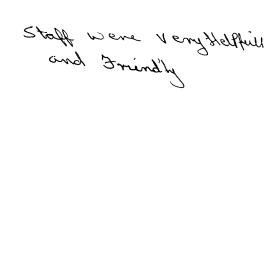 Staff were Very Helpfull
and Friendly